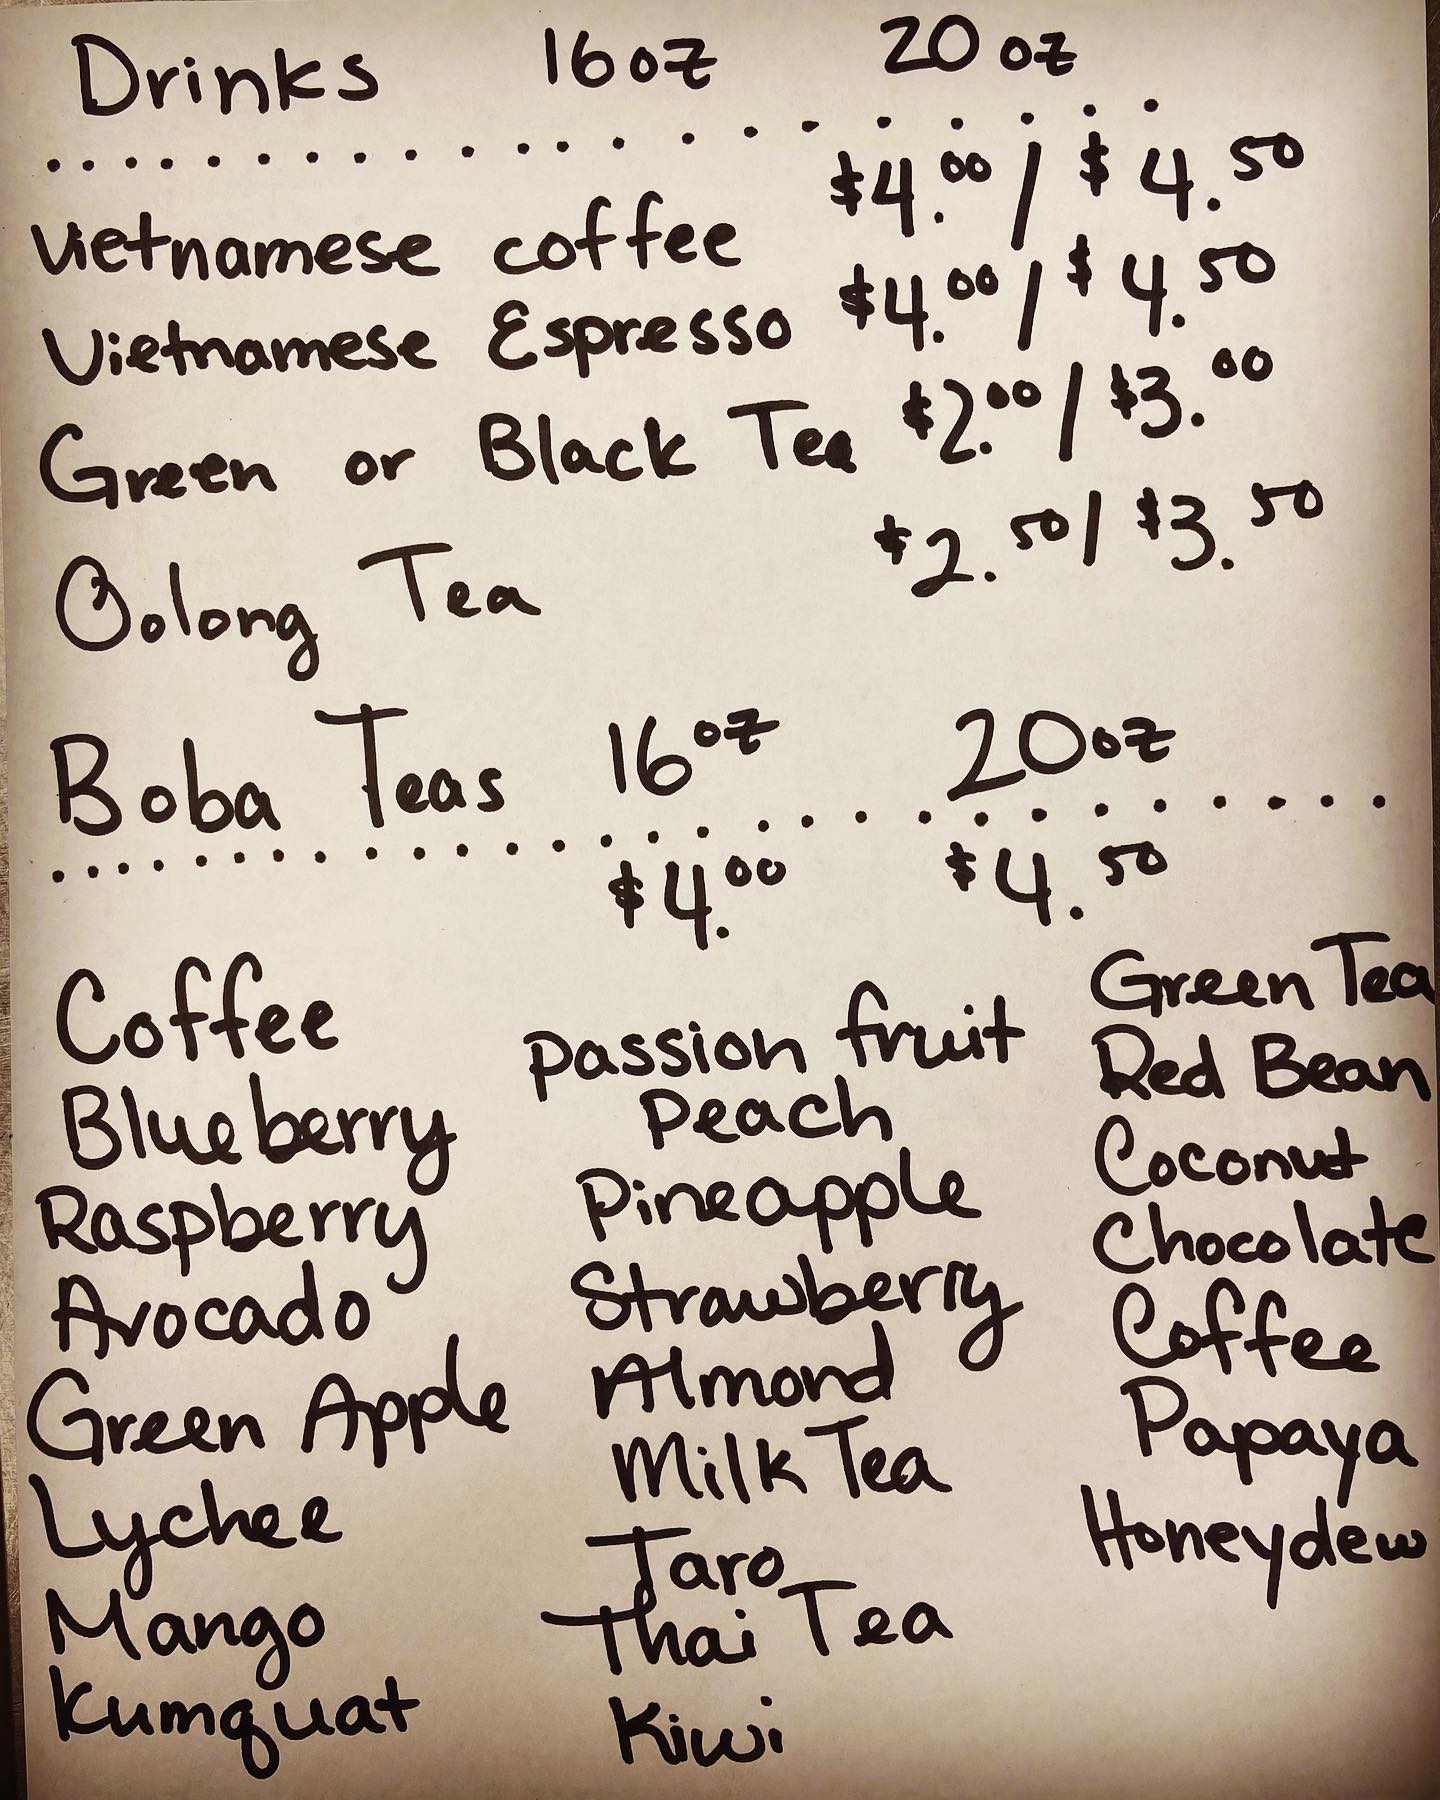 Drinks 16oz 20oz
Vietnamese coffee $4.00 / $4.50
Vietnamese Espresso $4.00 / $4.50
Green or Black Tea $2.00 / $3.00
Oolong Tea $2.50 / $3.50
Boba Teas 16oz 20oz
$4.00 $4.50
Coffee
Blueberry
Raspberry
Avocado
Green Apple
Lychee
Mango
Kumquat
Passion fruit
Peach
Pineapple
Strawberry
Almond
Milk Tea
Taro
Thai Tea
Kiwi
Green Tea
Red Bean
Coconut
Chocolate
Coffee
Papaya
Honeydew